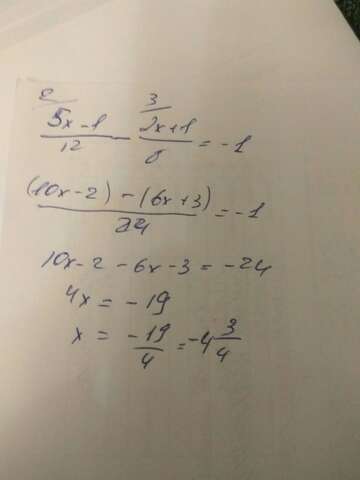 2 3
5x-1/12 - 2x+1/8 = -1
(10x-2) - (6x+3)/24 = -1
10x-2 - 6x-3 = -24
4x = -19
x = -19/4 = -4 3/4